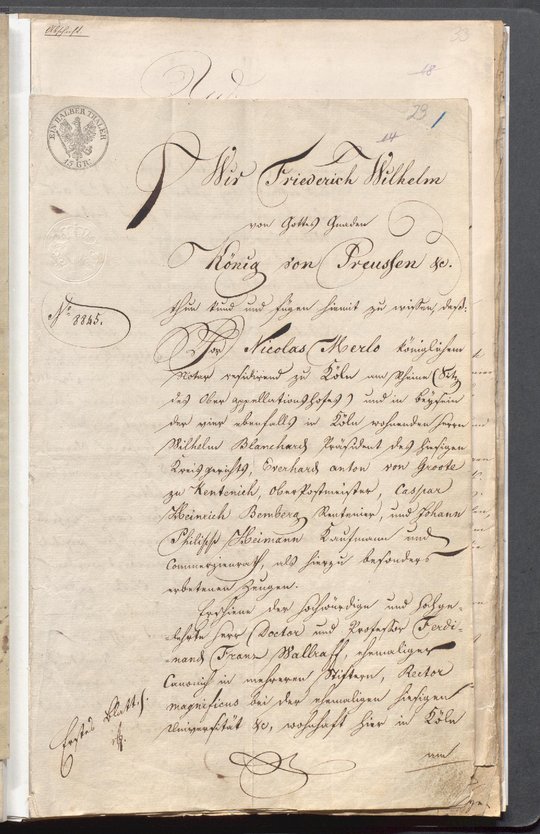 Abschrift.
33
18
23
1
14
EIN HALBER THALER
15 GR.
Wir Friederich Wilhelm
von Gottes Gnaden
König von Preussen &c.
thun kund und fügen hiemit zu wissen, daß:
No. 8845.
Vor Nicolas Merlo königlichem
Notar residirend zu Köln am Rheine (Sitz
des Ober appellationshofes) und in beysein
der vier ebenfalls in Köln wohnenden Herrn
Wilhelm Blanchard Präsident des hiesigen
Kreisgerichts, Everhard anton von Groote
zu Kentenich, Oberpostmeister, Caspar
Heinrich Bemberg Rentenier, und Johann
Philipp Heimann Kaufmann und
Commerzienrath, als hierzu besonders
erbetenen Zeugen.
Erschiene der hochwürdige und hochge-
lehrte Herr Doctor und Professor Ferdi-
nand Franz Wallraff, ehemaliger
Canonich in mehreren Stiftern, Rector
magnificus bei der ehemaligen hiesigen
Universität &c, wohnhaft hier in Köln
Erstes Blatt.